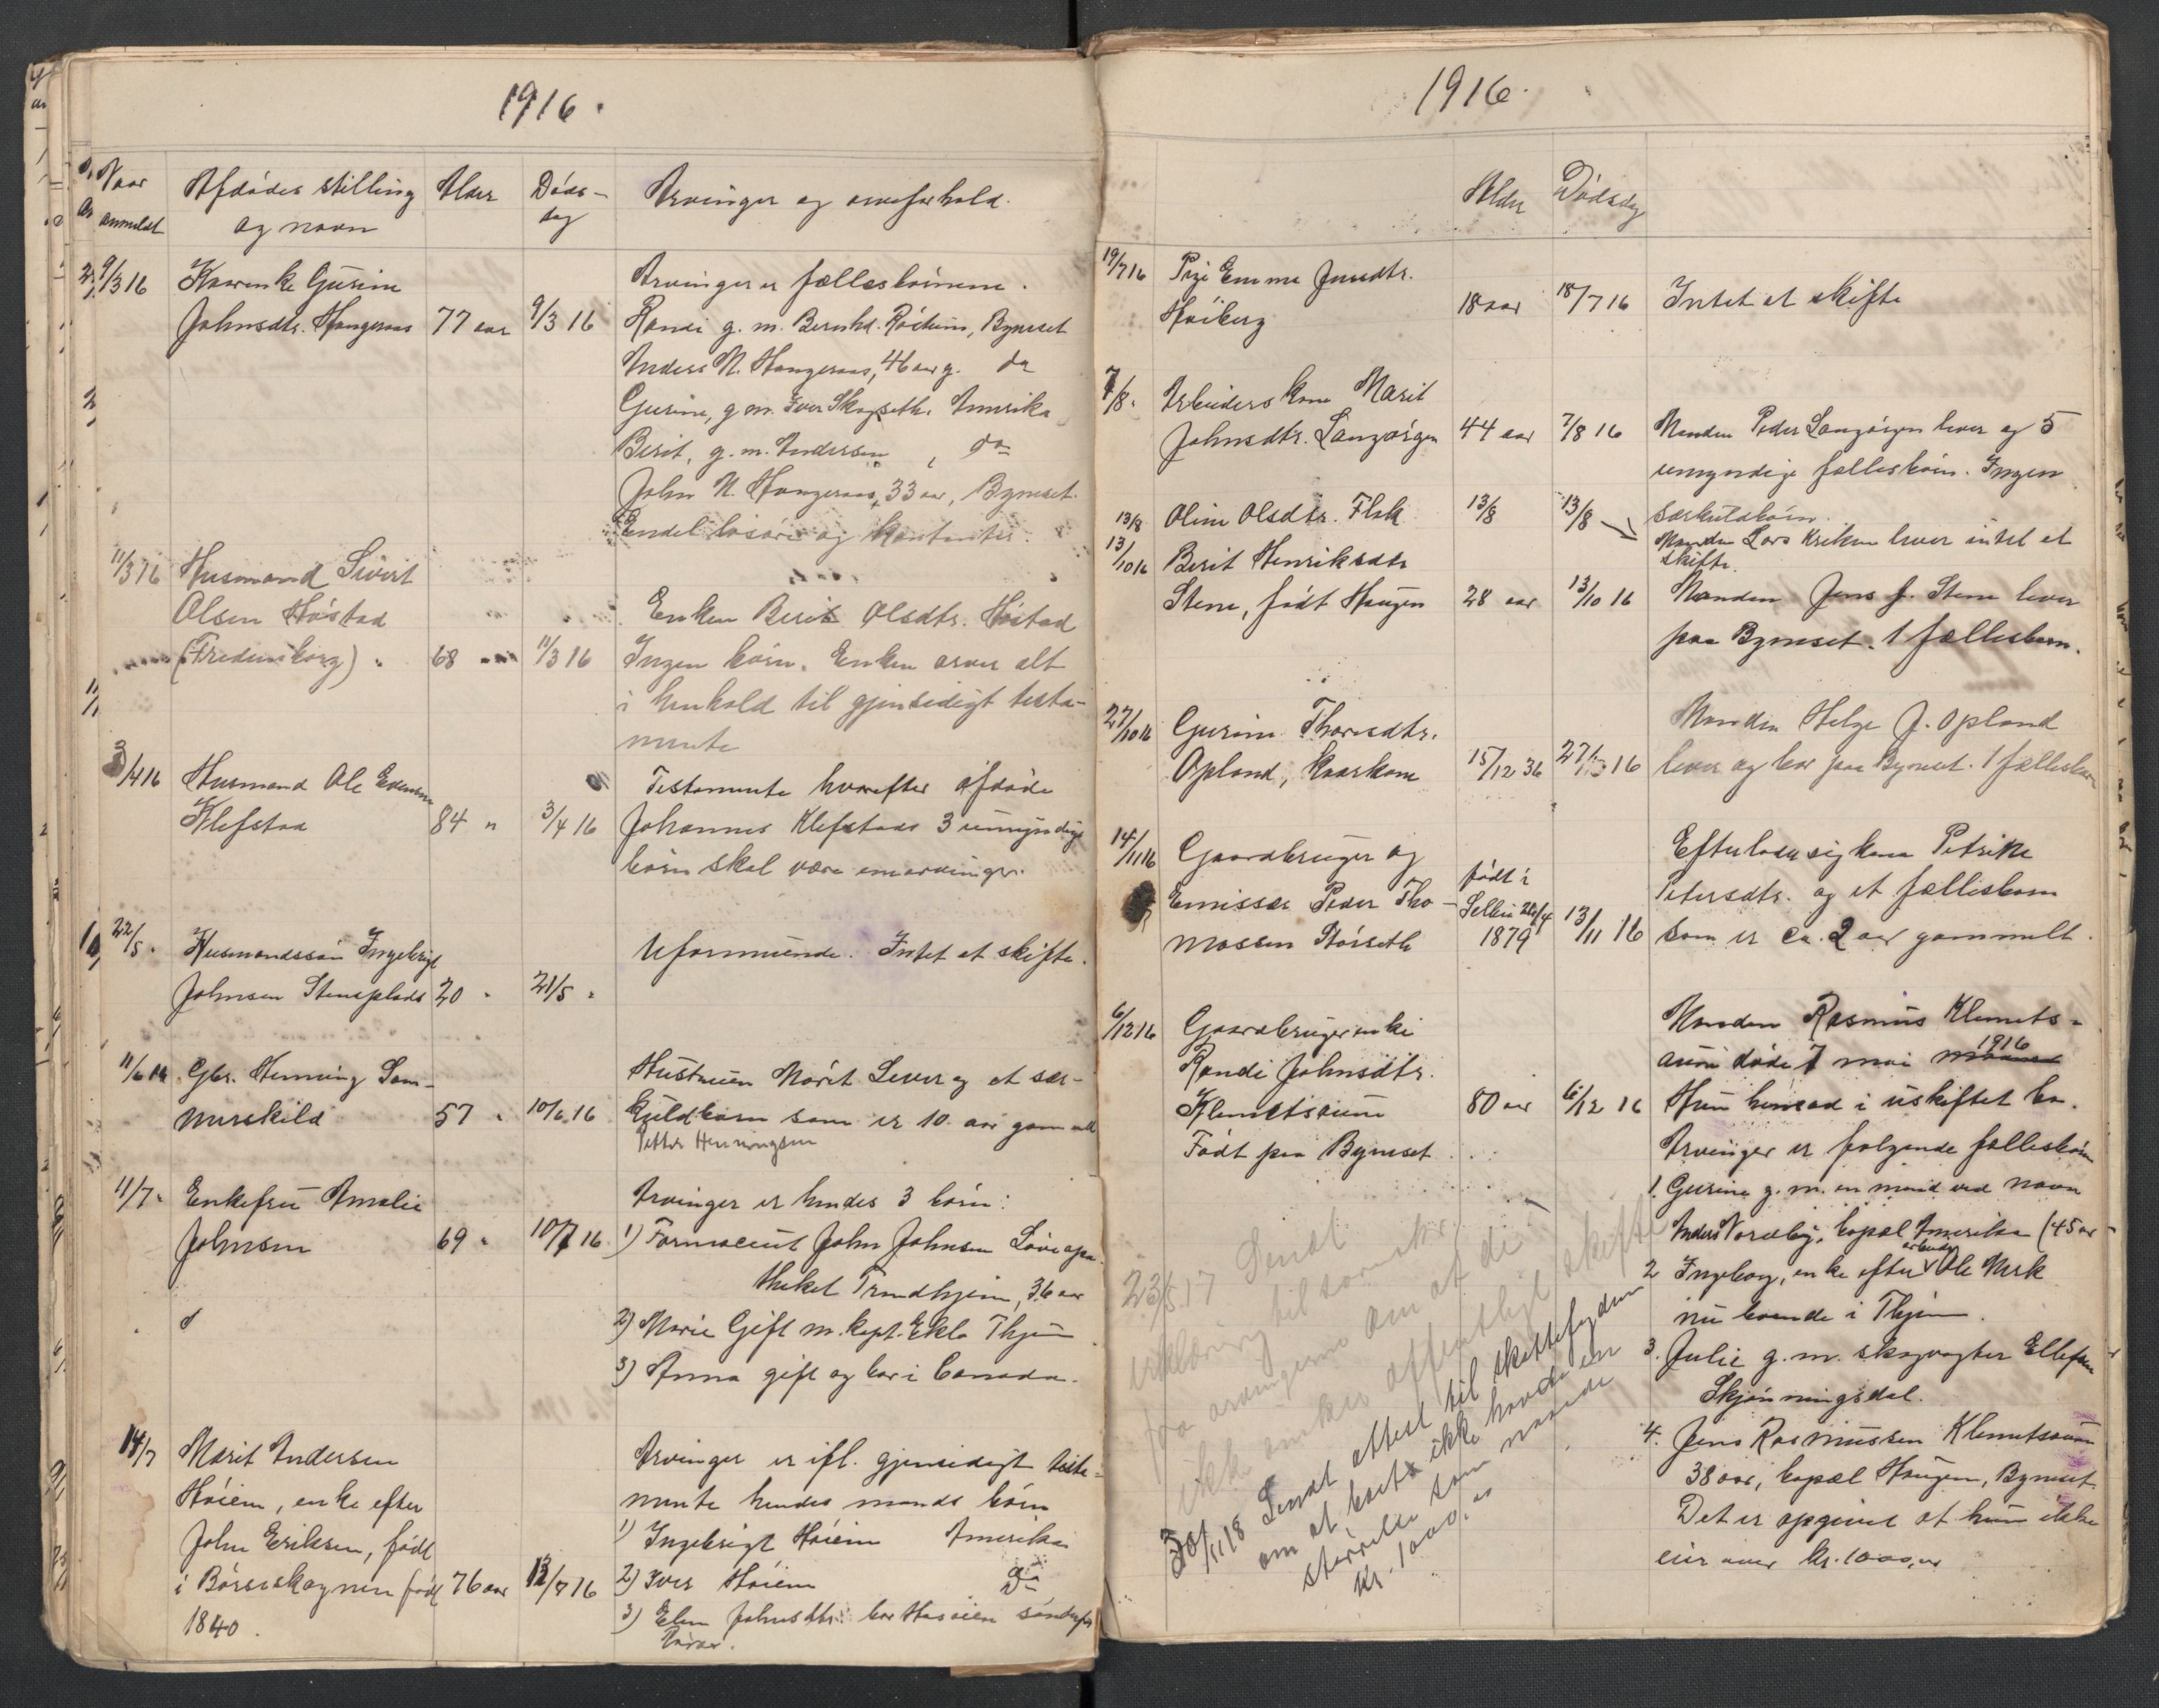 1916.
Naar
anmeldt
Afdødes stilling
og navn
Alder
Døds-
dag
Arvinger og arveforhold.
9/3 16 Kaarenke Gurine
Arvinger er fællesbørnene.
Johnsdtr. Hangeraas 77 aar 9/3 16 Randi g. m. Bernhd. Röstum, Bynesset
Anders N. Hangeraas, 46 aar g. do
Gurine, g. m. Iver Skogseth, Amerika
Berit, g. m. Andersen, do
John N. Hangeraas, 33 aar, Bynesset.
Endel løsøre og kontanter.
11/3 16 Husmand Sivert
Olsen Høstad
Enken Berit Olsdtr. Høstad
(Fredensborg) 68 11/3 16 Ingen børn. Enken arver alt
i henhold til gjensidigt testa-
mente
3/4 16 Husmand Ole Evensen
Testamente hvorefter afdøde
Klefstad 84 " 3/4 16 Johannes Klefstads 3 umyndige
børn skal være enearvinger.
22/5 " Husmandssøn Ingebrigt
Uformuende. Intet at skifte.
Johnsen Stensplads 20 " 21/5 "
11/6 16 Gbr. Henning Sam-
Hustruen Marit Lever og et sær-
merskild 57 " 10/6 16 kuldbarn som er 10 aar gammelt
Petter Henningsen
11/7 " Enkefru Amalie
Arvinger er hendes 3 børn:
Johnsen 69 " 10/7 16 1) Farmaceut John Johnsen Løveapo-
theket Trondhjem, 36 aar
2) Marie Gift m. kapt. Eklo Thjem
3) Anna gift og bor i Canada.
14/7 Marit Andersen
Arvinger er ifl. gjensidigt testa-
Høiem, enke efter
mente hendes mands børn
John Eriksen, født
1) Ingebrigt Høiem Amerika
i Børseskognen født 76 aar 12/7 16 2) Iver Høiem do
1840.
3) Elen Johnsdtr. bor søndenfor
1916.
Alder
Dødsdag
19/7 16 Pige Emma Jensdtr.
Høiberg 18 aar 18/7 16 Intet at skifte
7/8 " Arbeiderskone Marit
Johnsdtr. Langørgen 44 aar 7/8 16 Manden Peder Langørgen lever og 5
umyndige fællesbørn. Ingen
særkuldbørn.
13/8 Oline Olsdtr. Flak 13/8 13/8 Manden Lars Eriksen lever intet at
skifte.
13/10 16 Berit Henriksdtr
Stene, født Haugen 28 aar 13/10 16 Manden Jens J. Stene lever
paa Bynesset. 1 fællesbarn.
27/10 16 Gurine Thoresdtr.
Manden Helge J. Opland
Opland, kaarkone 15/12 36 27/10 16 lever og bor paa Bynesset. 1 fællesbarn
14/11 16 Gaardbruger og
Efterlader sig kone Petrike
Emissær Peder Tho-
født i
Petersdtr. og et fællesbarn
massen Størseth
Selbu 20/4
1879
13/11 16 som er ca. 2 aar gammelt.
6/12 16 Gaardbrugerenke
Manden Rasmus Klemets-
Randi Johnsdtr.
aune døde 7 mai 1916
Klemetsaune 80 aar 6/12 16 Hun hensad i uskiftet bo.
Født paa Bynesset
Arvinger er følgende fællesbørn
1. Gurine g. m. en mand ved navn
Anders Nordby, bopæl Amerika (45 aar
2 Ingeborg, enke efter arbeider Ole Merk
nu boende i Thjem.
3. Julie g. m. skogvogter Ellefsen
Skjønningsdal.
4. Jens Rasmussen Klemetsaune
38 aar, bopæl Haugen, Bynesset.
Det er opgivet at hun ikke
eier over kr. 1000,00
23/5 17 Sendt
erklæring til sorenskr.
fra arvingerne om at de
ikke ønsker offentligt skifte
30/11 18 Sendt attest til skiftefogden
om at boet ikke havde en
størrelse som naaede
kr. 1000,00